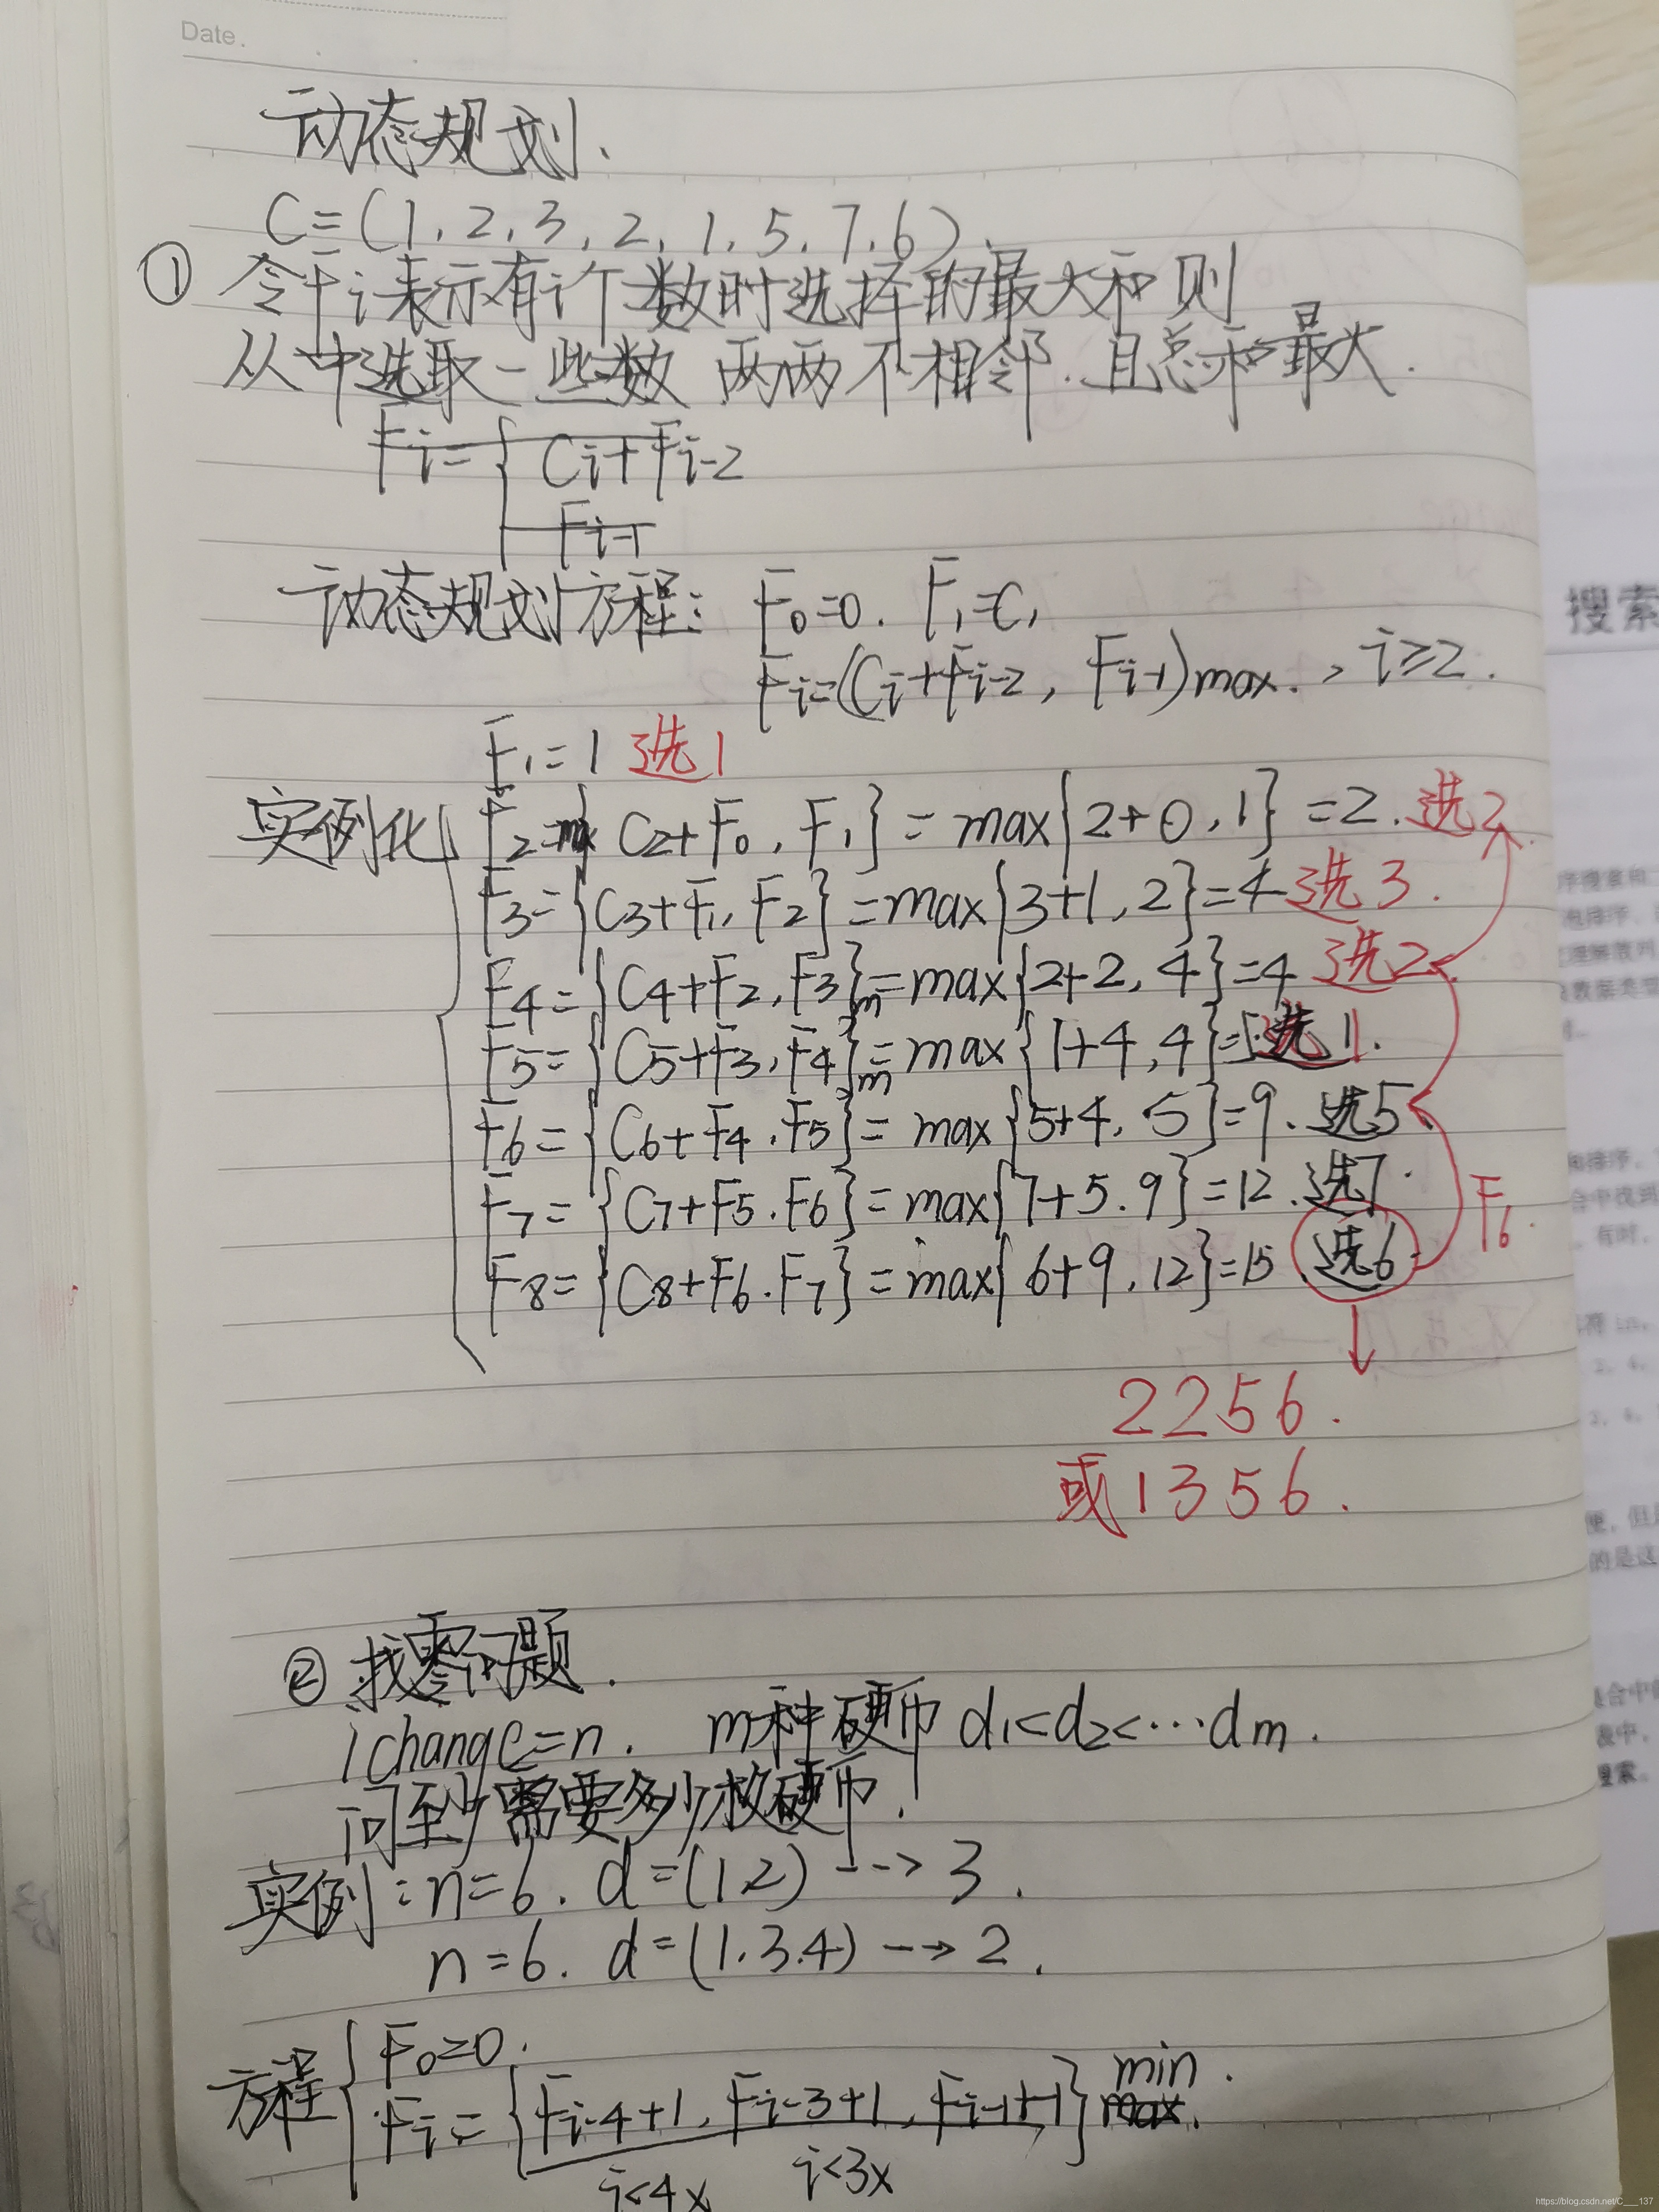 Date.
动态规划、
C=(1,2,3,2,1,5,7,6).
① 令Fi表示有i个数时选择的最大和 则
从中选取一些数 两两不相邻.且总和最大.
Fi={ Ci+Fi-2
Fi-1
动态规划方程: F0=0. F1=C1
Fi=(Ci+Fi-2, Fi-1)max. , i≥2.
F1=1 选1
实例化 F2=max{C2+F0, F1}=max{2+0,1}=2.选2
F3={C3+F1, F2}=max{3+1,2}=4 选3.
F4={C4+F2,F3}m=max{2+2,4}=4 选2
F5={C5+F3,F4}m=max{1+4,4}=5选1.
F6={C6+F4.F5}=max{5+4,5}=9.选5
F7={C7+F5.F6}=max{7+5.9}=12.选7.
F6.
F8={C8+F6.F7}=max{6+9,12}=15 选6
2256.
或1356.
② 找零问题.
change=n. m种硬币 d1<d2<…dm.
问至少需要多少枚硬币.
实例:n=6. d=(1,2) --→ 3.
n=6. d=(1.3.4) --→ 2.
方程{ F0=0.
Fi={Fi-4+1, Fi-3+1, Fi-1+1} min.
max.
i<4x i<3x
搜索
搜索。
https://blog.csdn.net/C___137